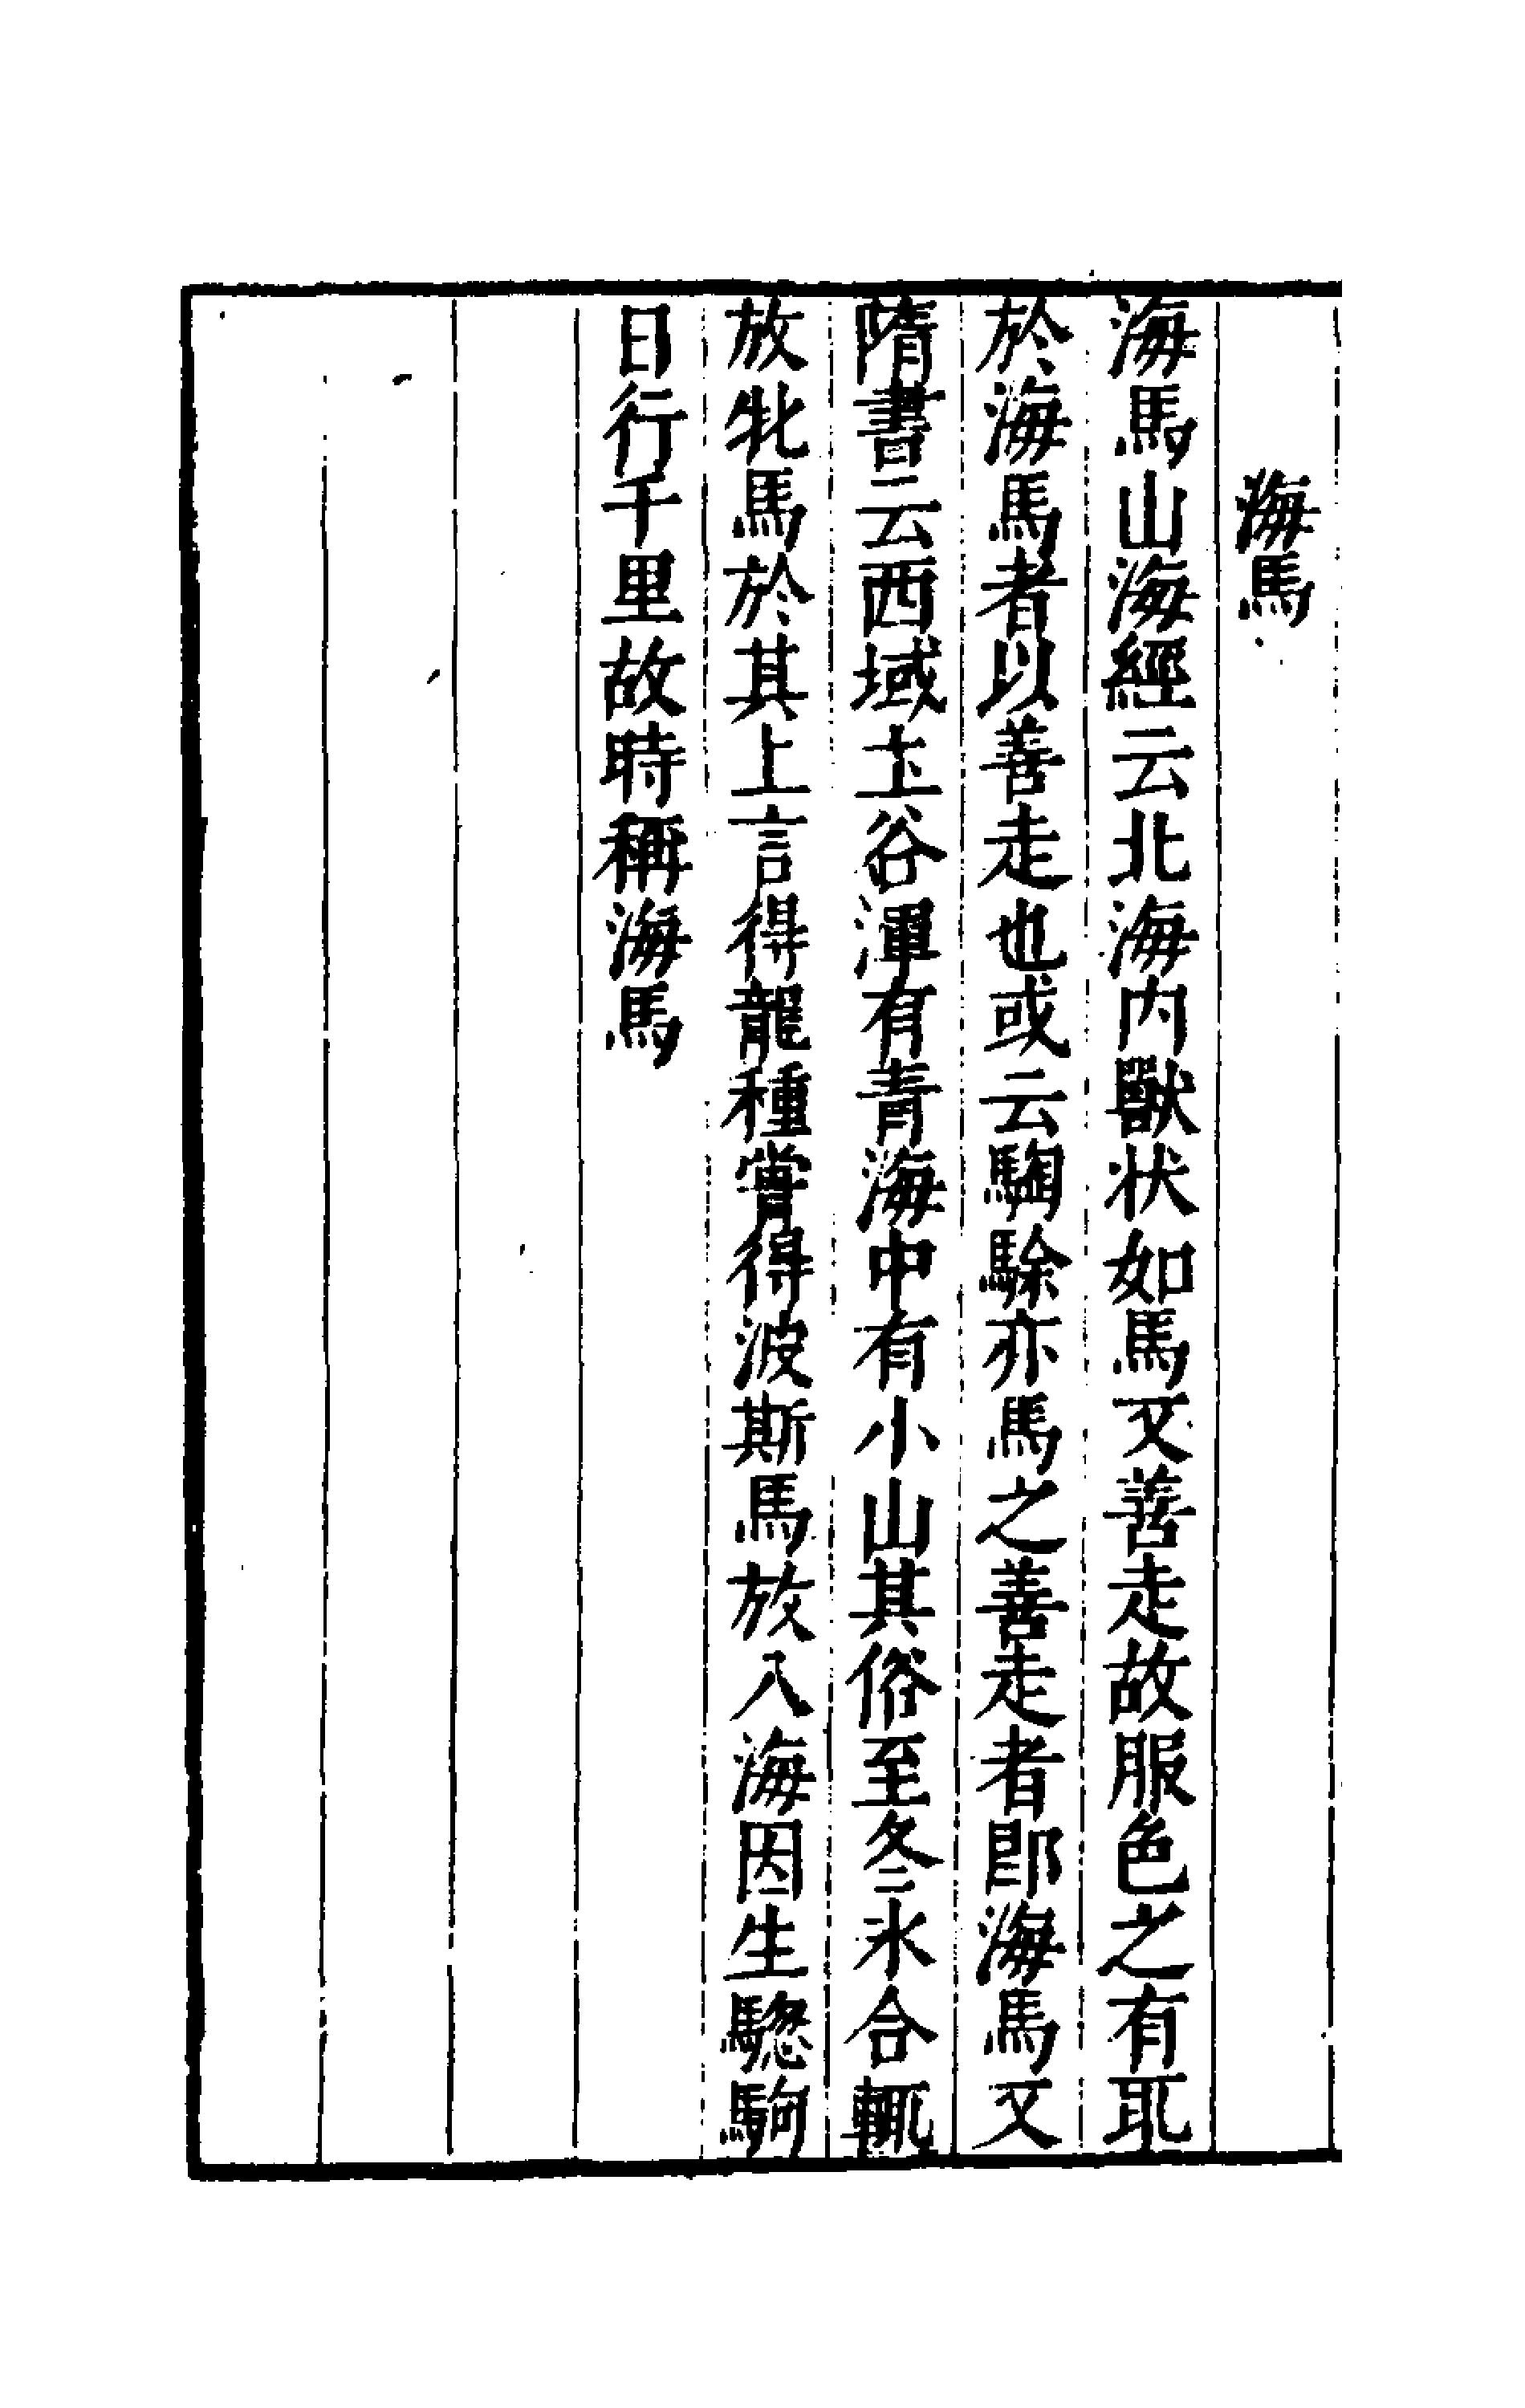 海馬
海馬山海經云北海内獸状如馬又善走故服色之有取
於海馬者以善走也或云騊駼亦馬之善走者即海馬又
隋書云西域𡈽谷渾有青海中有小山其俗至冬冰合輒
放牝馬於其上言得龍種嘗得波斯馬放入海因生驄駒
日行千里故時稱海馬